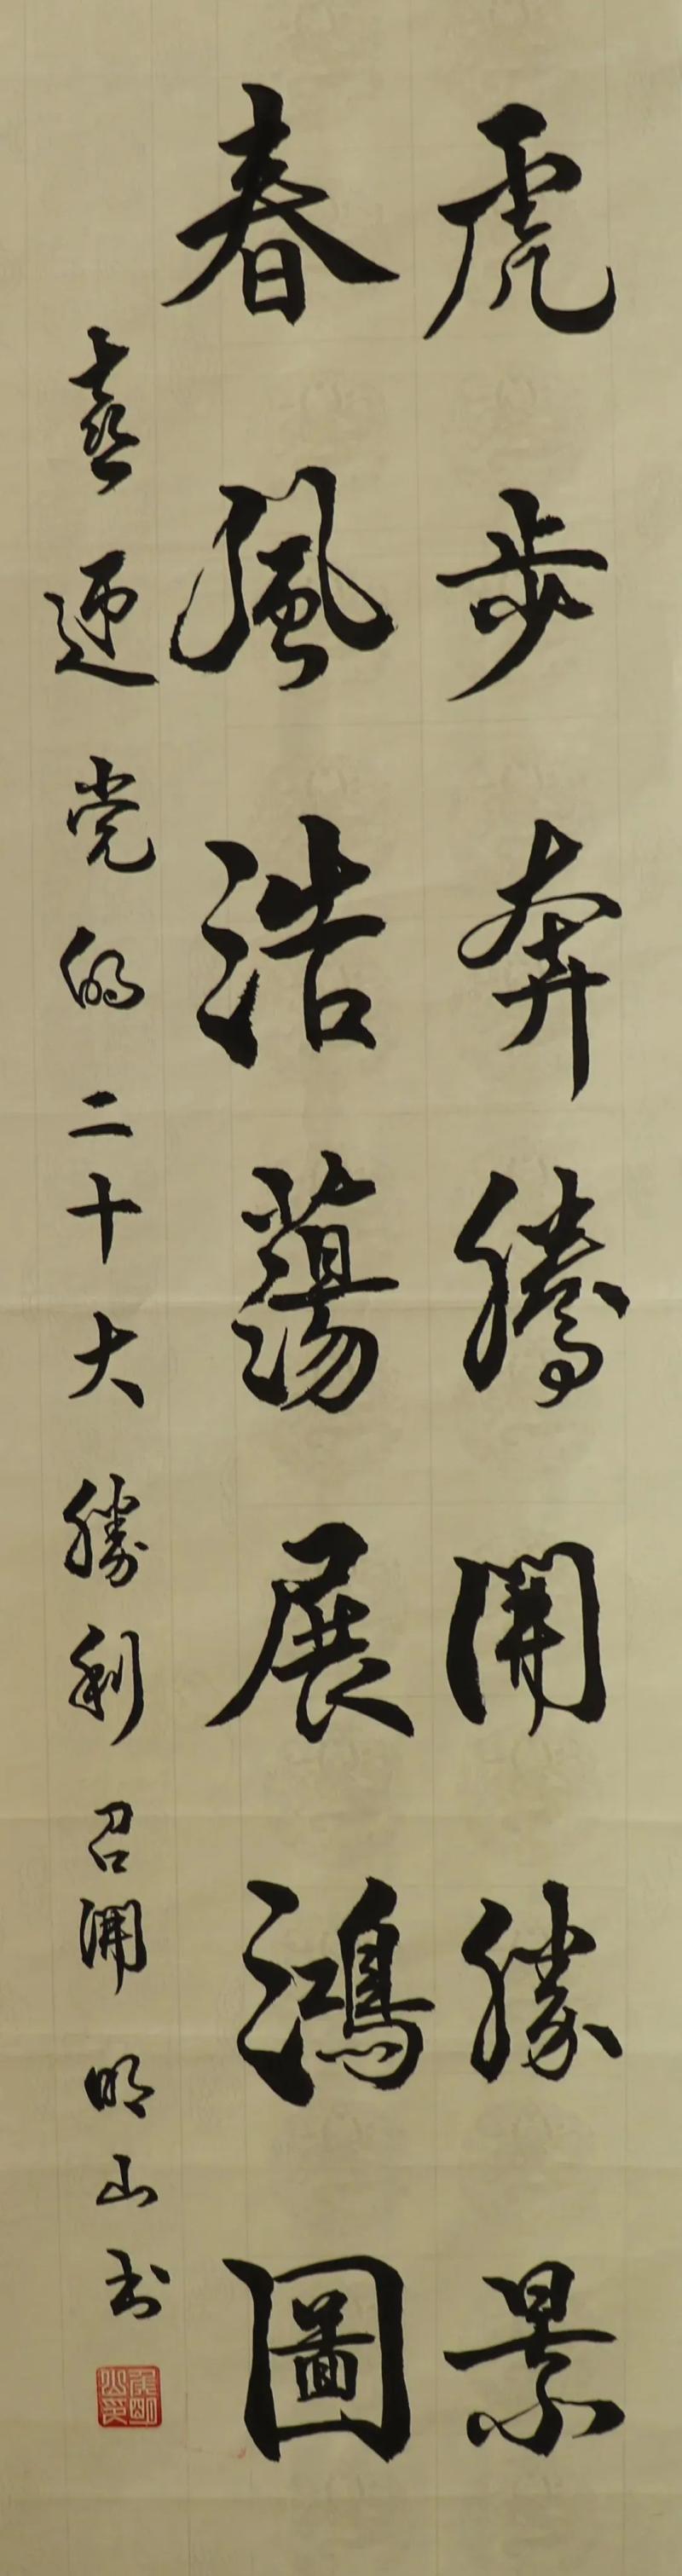 虎步奔騰開勝景
春風浩蕩展鴻圖
喜迎党的二十大勝利召開 明山书